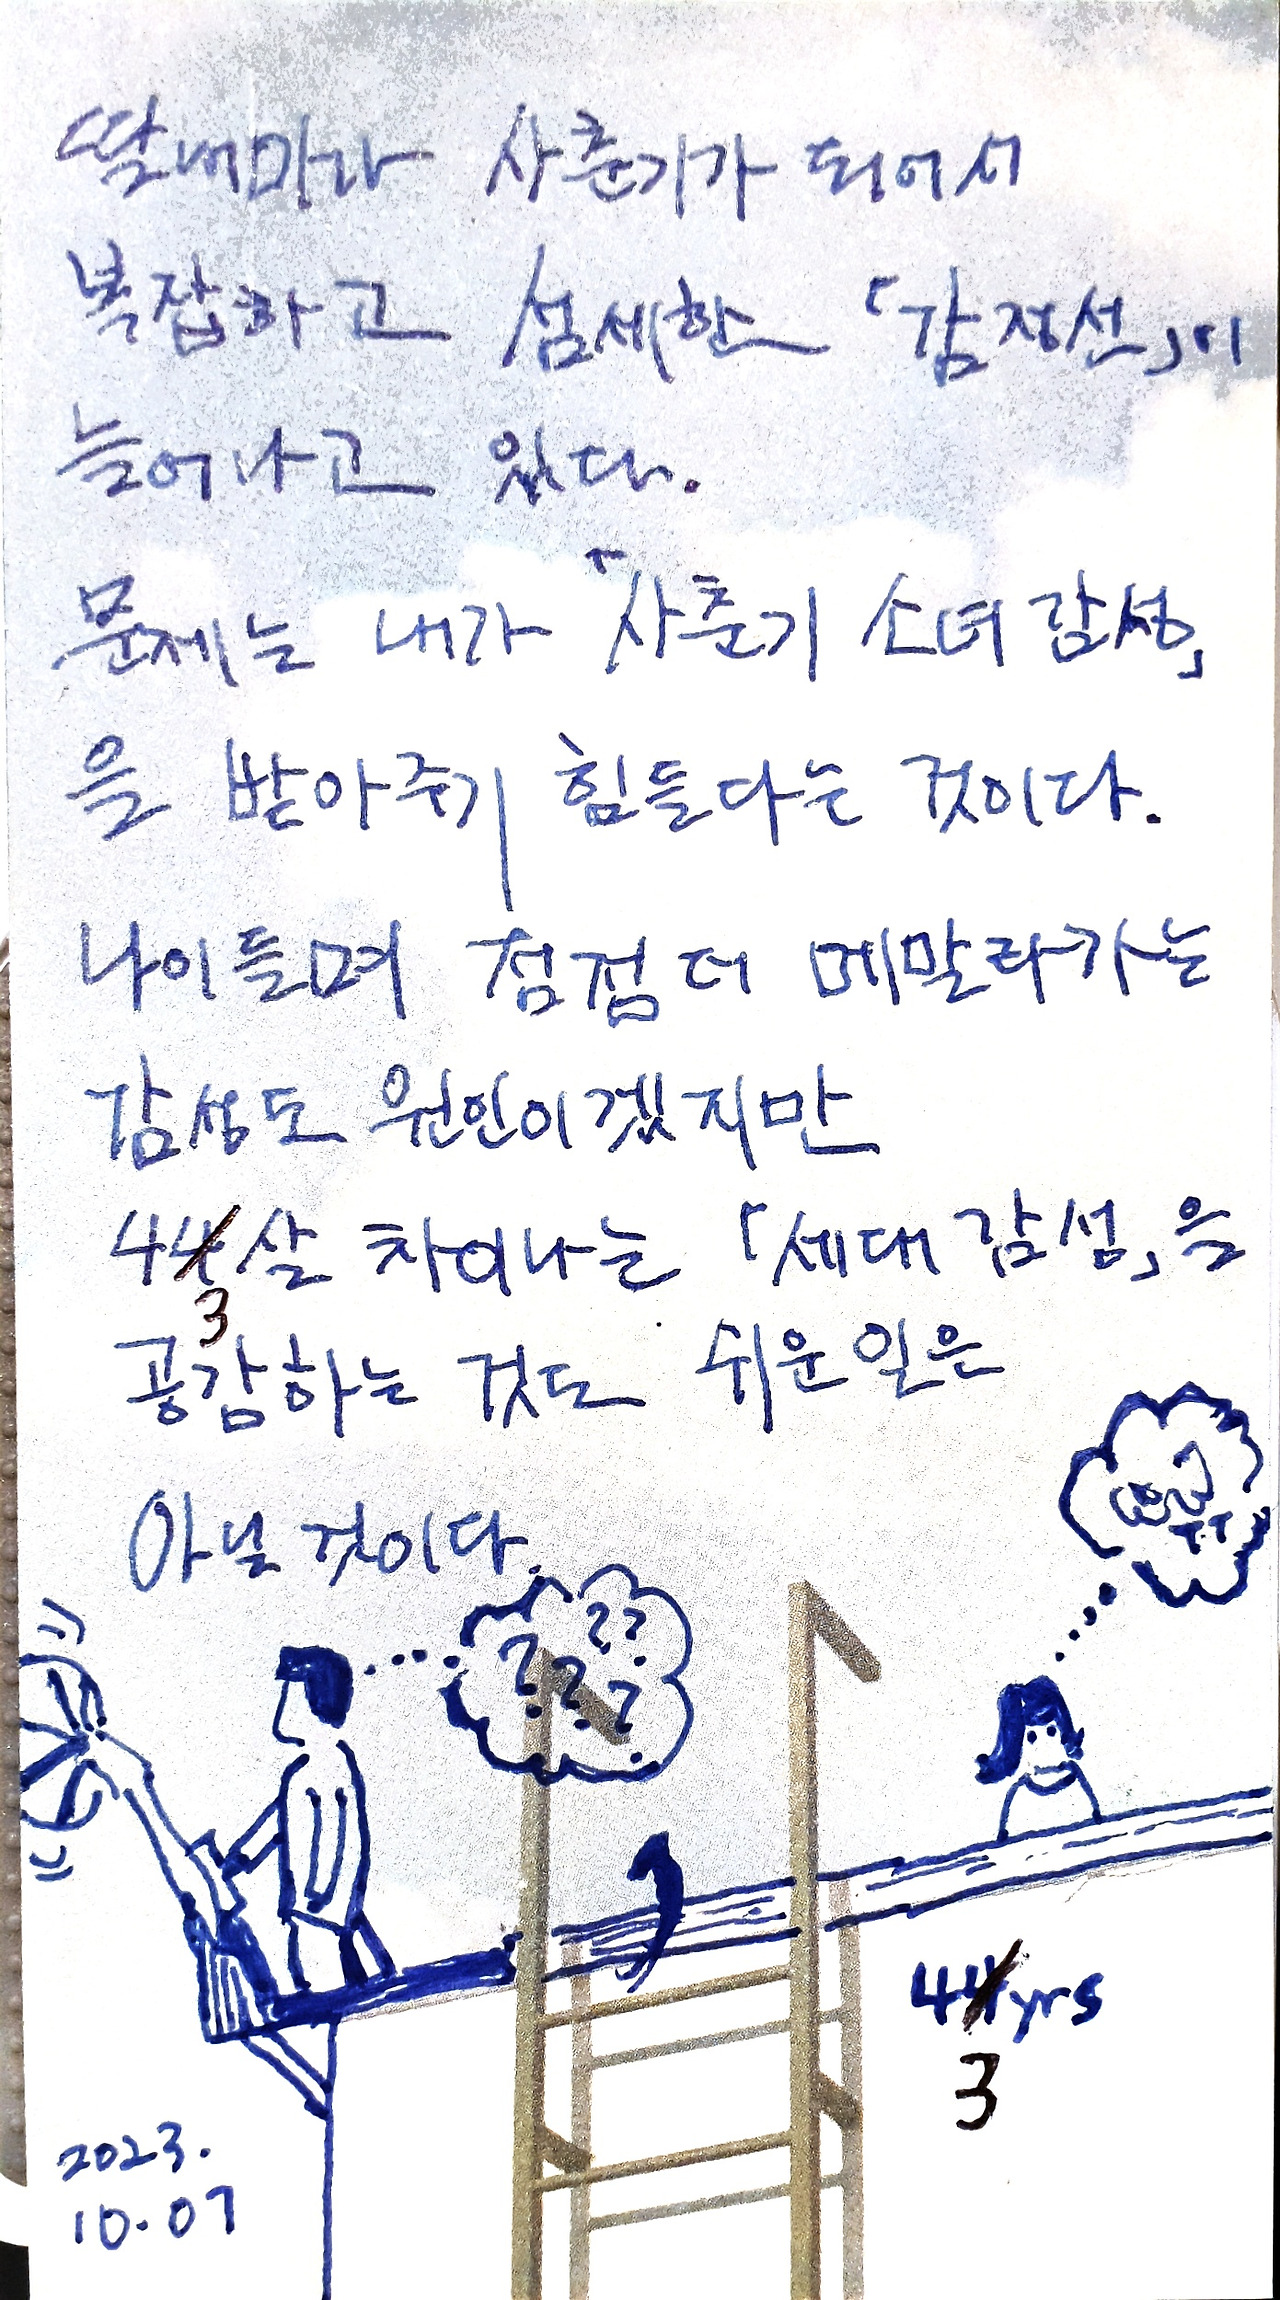 딸내미가 사춘기가 되어서
복잡하고 섬세한 「감정선」이
늘어나고 있다.
문제는 내가 「사춘기 소녀 감성」
을 받아주기 힘들다는 것이다.
나이들며 점점 더 메말라가는
감성도 원인이겠지만
443살 차이나는 「세대 감성」을
공감하는 것도 쉬운 일은
아닐 것이다.
??
? ? ?
ㅜㅜ
443yrs
2023.
10.07